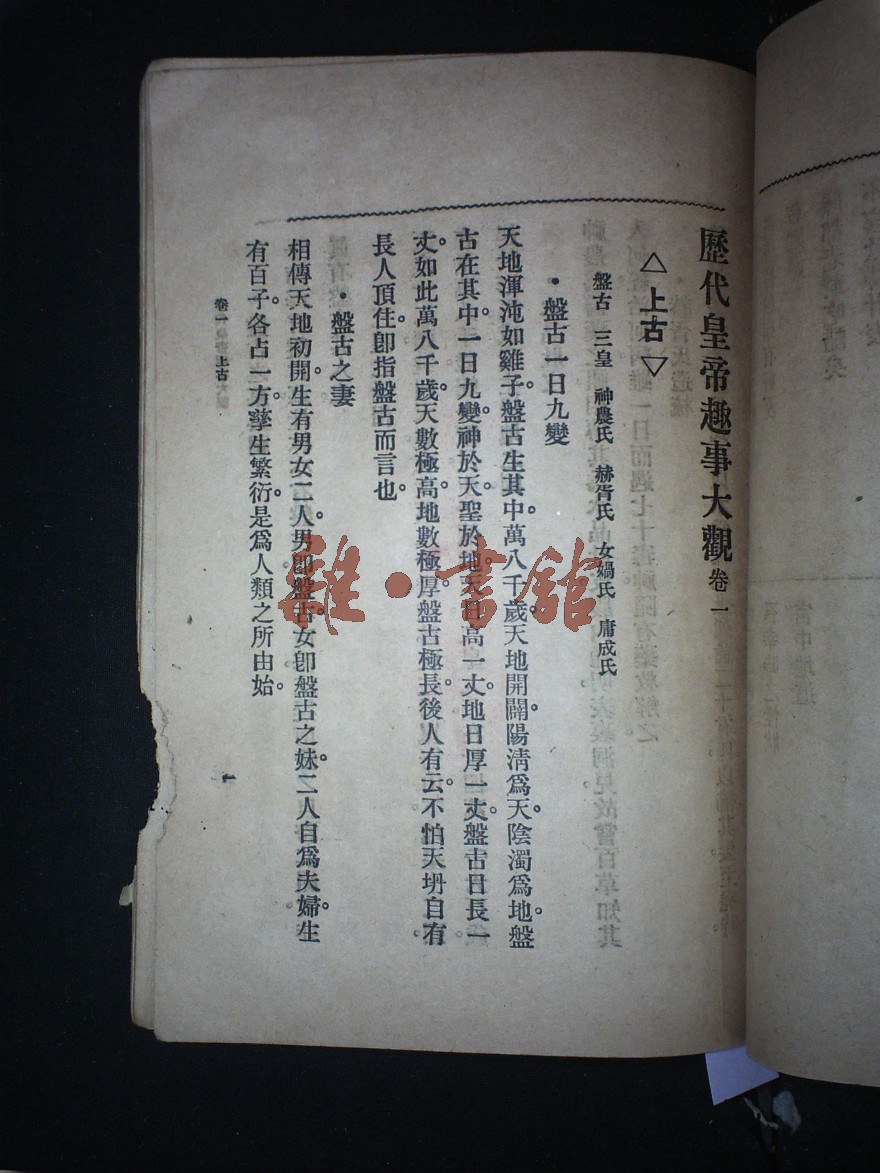 歷代皇帝趣事大觀 卷一
△上古▽
盤古 三皇 神農氏 赫胥氏 女媧氏 庸成氏
•盤古一日九變
天地渾沌如雞子盤古生其中萬八千歲天地開闢陽清爲天陰濁爲地盤
古在其中一日九變神於天聖於地天日高一丈地日厚一丈盤古日長一
丈如此萬八千歲天數極高地數極厚盤古極長後人有云不怕天坍自有
長人頂住卽指盤古而言也
•盤古之妻
相傳天地初開生有男女二人男卽盤古女卽盤古之妹二人自爲夫婦生
有百子各占一方孳生繁衍是爲人類之所由始
卷一 上古
一
雜·書館